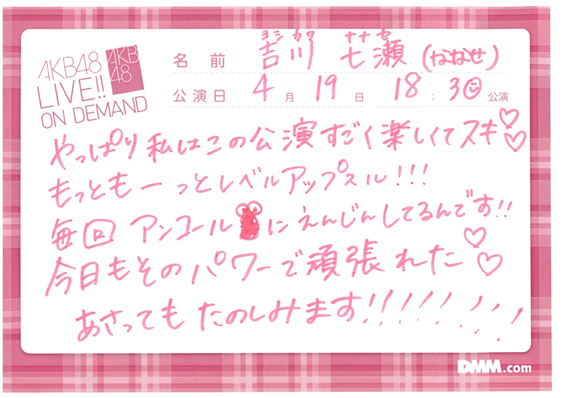 AKB48
LIVE!!
ON DEMAND
AKB
48
名前 吉川 七瀬 (ななせ)
ヨシカワ ナナセ
公演日 4月19日 18:30公演
やっぱり私はこの公演すごく楽しくてスキ♡♡
もっともーっとレベルアップスル!!!
毎回 アンコール前にえんじんしてるんです!!
今日もそのパワーで頑張れた♡♡
あさっても たのしみます!!!!!!!!
DMM.com